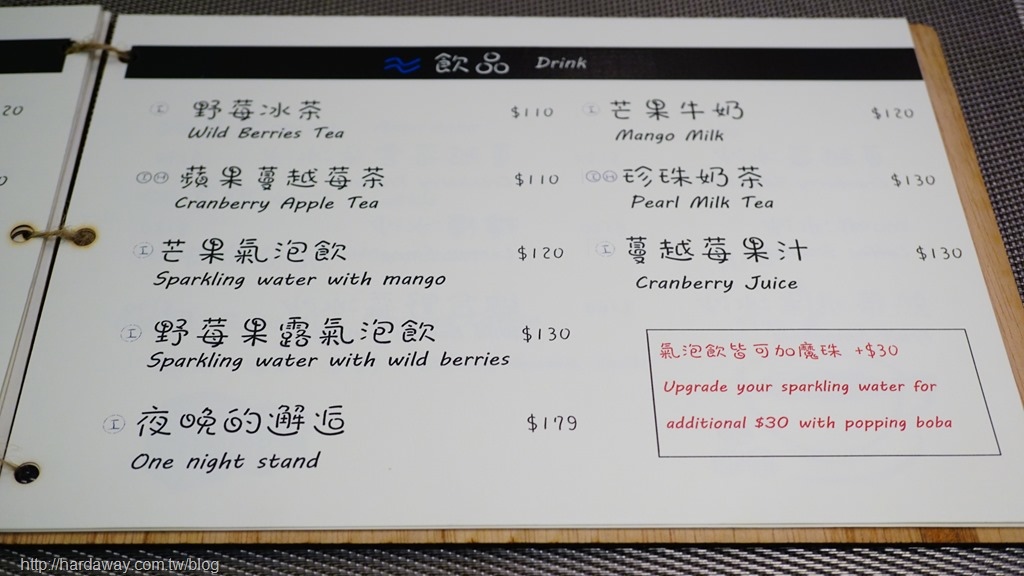 20
飲品 Drink
Ⓘ 野莓冰茶 $110
Wild Berries Tea
ⒾⒽ 蘋果蔓越莓茶 $110
Cranberry Apple Tea
Ⓘ 芒果氣泡飲 $120
Sparkling water with mango
Ⓘ 野莓果露氣泡飲 $130
Sparkling water with wild berries
Ⓘ 夜晚的邂逅 $179
One night stand
Ⓘ 芒果牛奶 $120
Mango Milk
ⒾⒽ 珍珠奶茶 $130
Pearl Milk Tea
Ⓘ 蔓越莓果汁 $130
Cranberry Juice
氣泡飲皆可加魔珠 +$30
Upgrade your sparkling water for
additional $30 with popping boba
http://hardaway.com.tw/blog